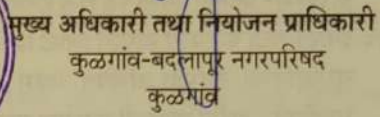 मुख्य अधिकारी तथा नियोजन प्राधिकारी
कुळगांव-बदलापूर नगरपरिषद
कुळगांव